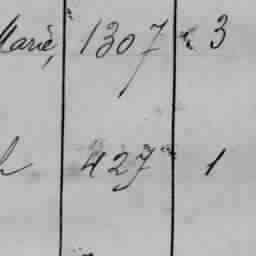 Marie, 1307 3
427 1